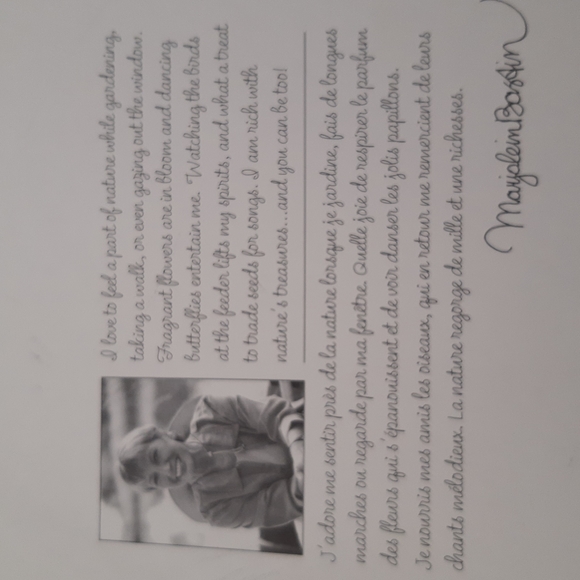 I love to feel a part of nature while gardening,
taking a walk, or even gazing out the window.
Fragrant flowers are in bloom and dancing
butterflies entertain me. Watching the birds
at the feeder lifts my spirits, and what a treat
to trade seeds for songs. I am rich with
nature's treasures...and you can be too!
J'adore me sentir près de la nature lorsque je jardine, fais de longues
marches ou regarde par ma fenêtre. Quelle joie de respirer le parfum
des fleurs qui s'épanouissent et de voir danser les jolis papillons.
Je nourris mes amis les oiseaux, qui en retour me remercient de leurs
chants mélodieux. La nature regorge de mille et une richesses.
Marjolein Bastin